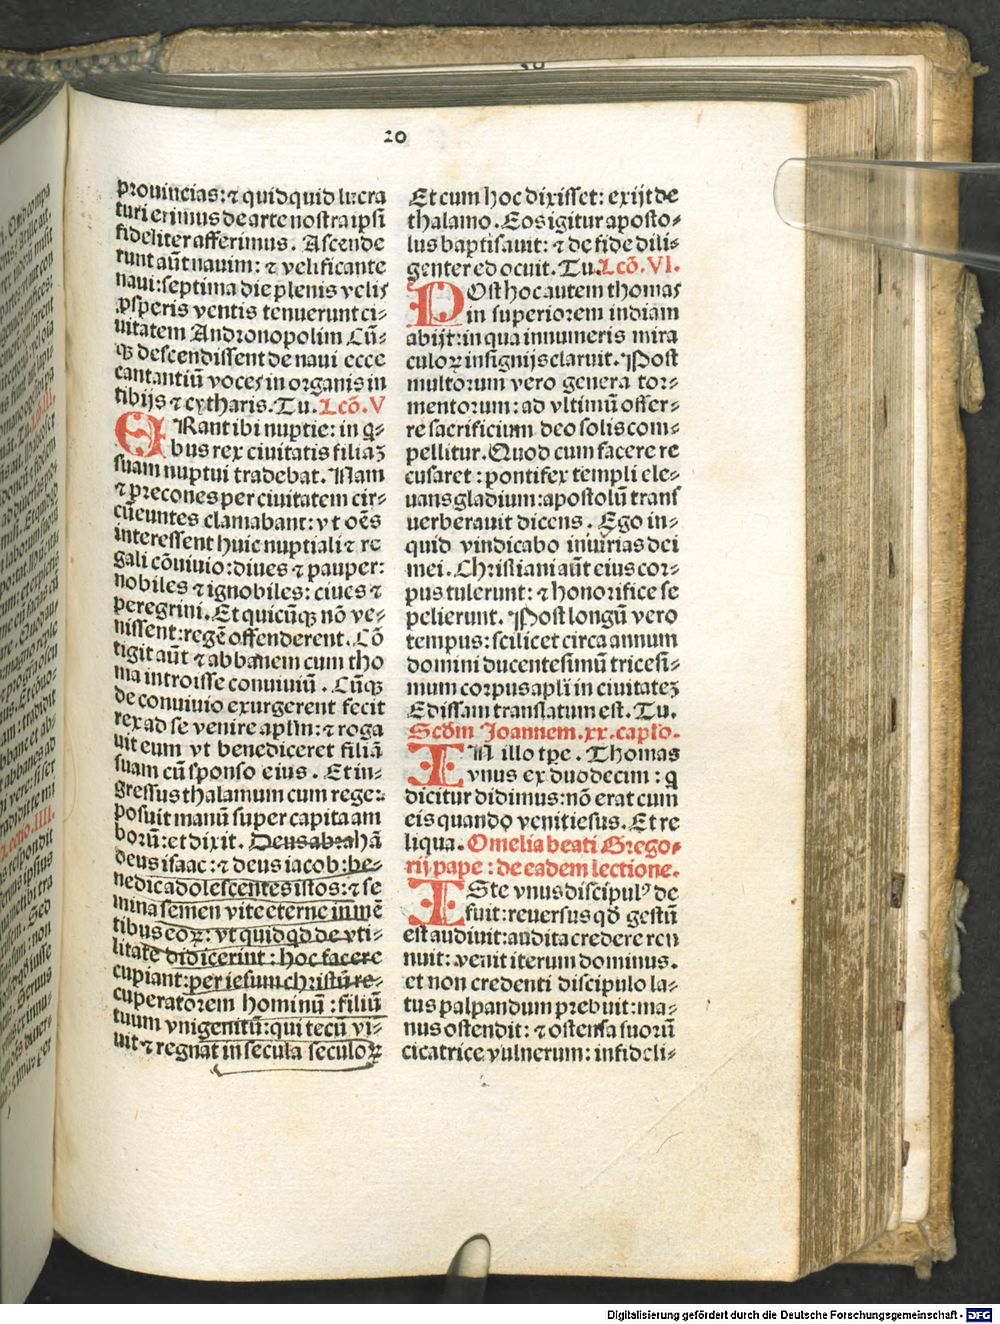 20
prouincias: ⁊ quidquid lucra
turi erimus de arte nostra ipsi
fideliter afferimus. Ascende
runt aūt nauim: ⁊ velificante
naui: septima die plenis velis
ꝓsperis ventis tenuerunt ci⸗
uitatem Andronopolim Cū⸗
qꝫ descendissent de naui ecce
cantantiū voces in organis in
tibijs ⁊ cytharis. Tu. Lcō. V
ERant ibi nuptie: in q⸗
bus rex ciuitatis filiaꝫ
suam nuptui tradebat. Nam
⁊ precones per ciuitatem cir⸗
cūeuntes clamabant: vt oēs
interessent huic nuptiali ⁊ re
gali cōuiuio: diues ⁊ pauper:
nobiles ⁊ ignobiles: ciues ⁊
peregrini. Et quicūqꝫ nō ve⸗
nissent: regē offenderent. Cō
tigit aūt ⁊ abbanem cum tho
ma introisse conuiuiū. Cūqꝫ
de conuiuio exurgerent fecit
rex ad se venire aplm̄: ⁊ roga
uit eum vt benediceret filiā
suam cū sponso eius. Et in⸗
gressus thalamum cum rege:
posuit manū super capita am
borū: et dixit. Deus abrahā
deus isaac: ⁊ deus iacob: be⸗
nedic adolescentes istos: ⁊ se
mina semen vite eterne in mē
tibus eoꝝ: vt quid qd de vti⸗
litate didicerint: hoc facere
cupiant: per iesum christū re⸗
cuperatorem hominū: filiū
tuum vnigenitū: qui tecū vi⸗
uit ⁊ regnat in secula seculoꝝ
Et cum hoc dixisset: exijt de
thalamo. Eos igitur aposto⸗
lus baptisauit: ⁊ de fide dili⸗
genter edocuit. Tu. Lcō. VI.
POst hoc autem thomas
in superiorem indiam
abijt: in qua innumeris mira
culoꝝ insignijs claruit. Post
multorum vero genera tor⸗
mentorum: ad vltimū offer⸗
re sacrificium deo solis com⸗
pellitur. Quod cum facere re
cusaret: pontifex templi ele⸗
uans gladium: apostolū trans
uerberauit dicens. Ego in⸗
quid vindicabo iniurias dei
mei. Christiani aūt eius cor⸗
pus tulerunt: ⁊ honorifice se
pelierunt. Post longū vero
tempus: scilicet circa annum
domini ducentesimū tricesi⸗
mum corpus apli in ciuitateꝫ
Edissam translatum est. Tu.
Scd̄m Joannem. xx. caplo.
IN illo tpe. Thomas
vnus ex duodecim: q
dicitur didimus: nō erat cum
eis quando venit iesus. Et re
liqua. Omelia beati Grego⸗
rij pape: de eadem lectione.
ISte vnus discipulꝰ de
fuit: reuersus qd̄ gestū
est audiuit: audita credere ren
nuit: venit iterum dominus.
et non credenti discipulo la⸗
tus palpandum prebuit: ma⸗
nus ostendit: ⁊ ostensa suorū
cicatrice vulnerum: infideli⸗
Digitalisierung gefördert durch die Deutsche Forschungsgemeinschaft - DFG